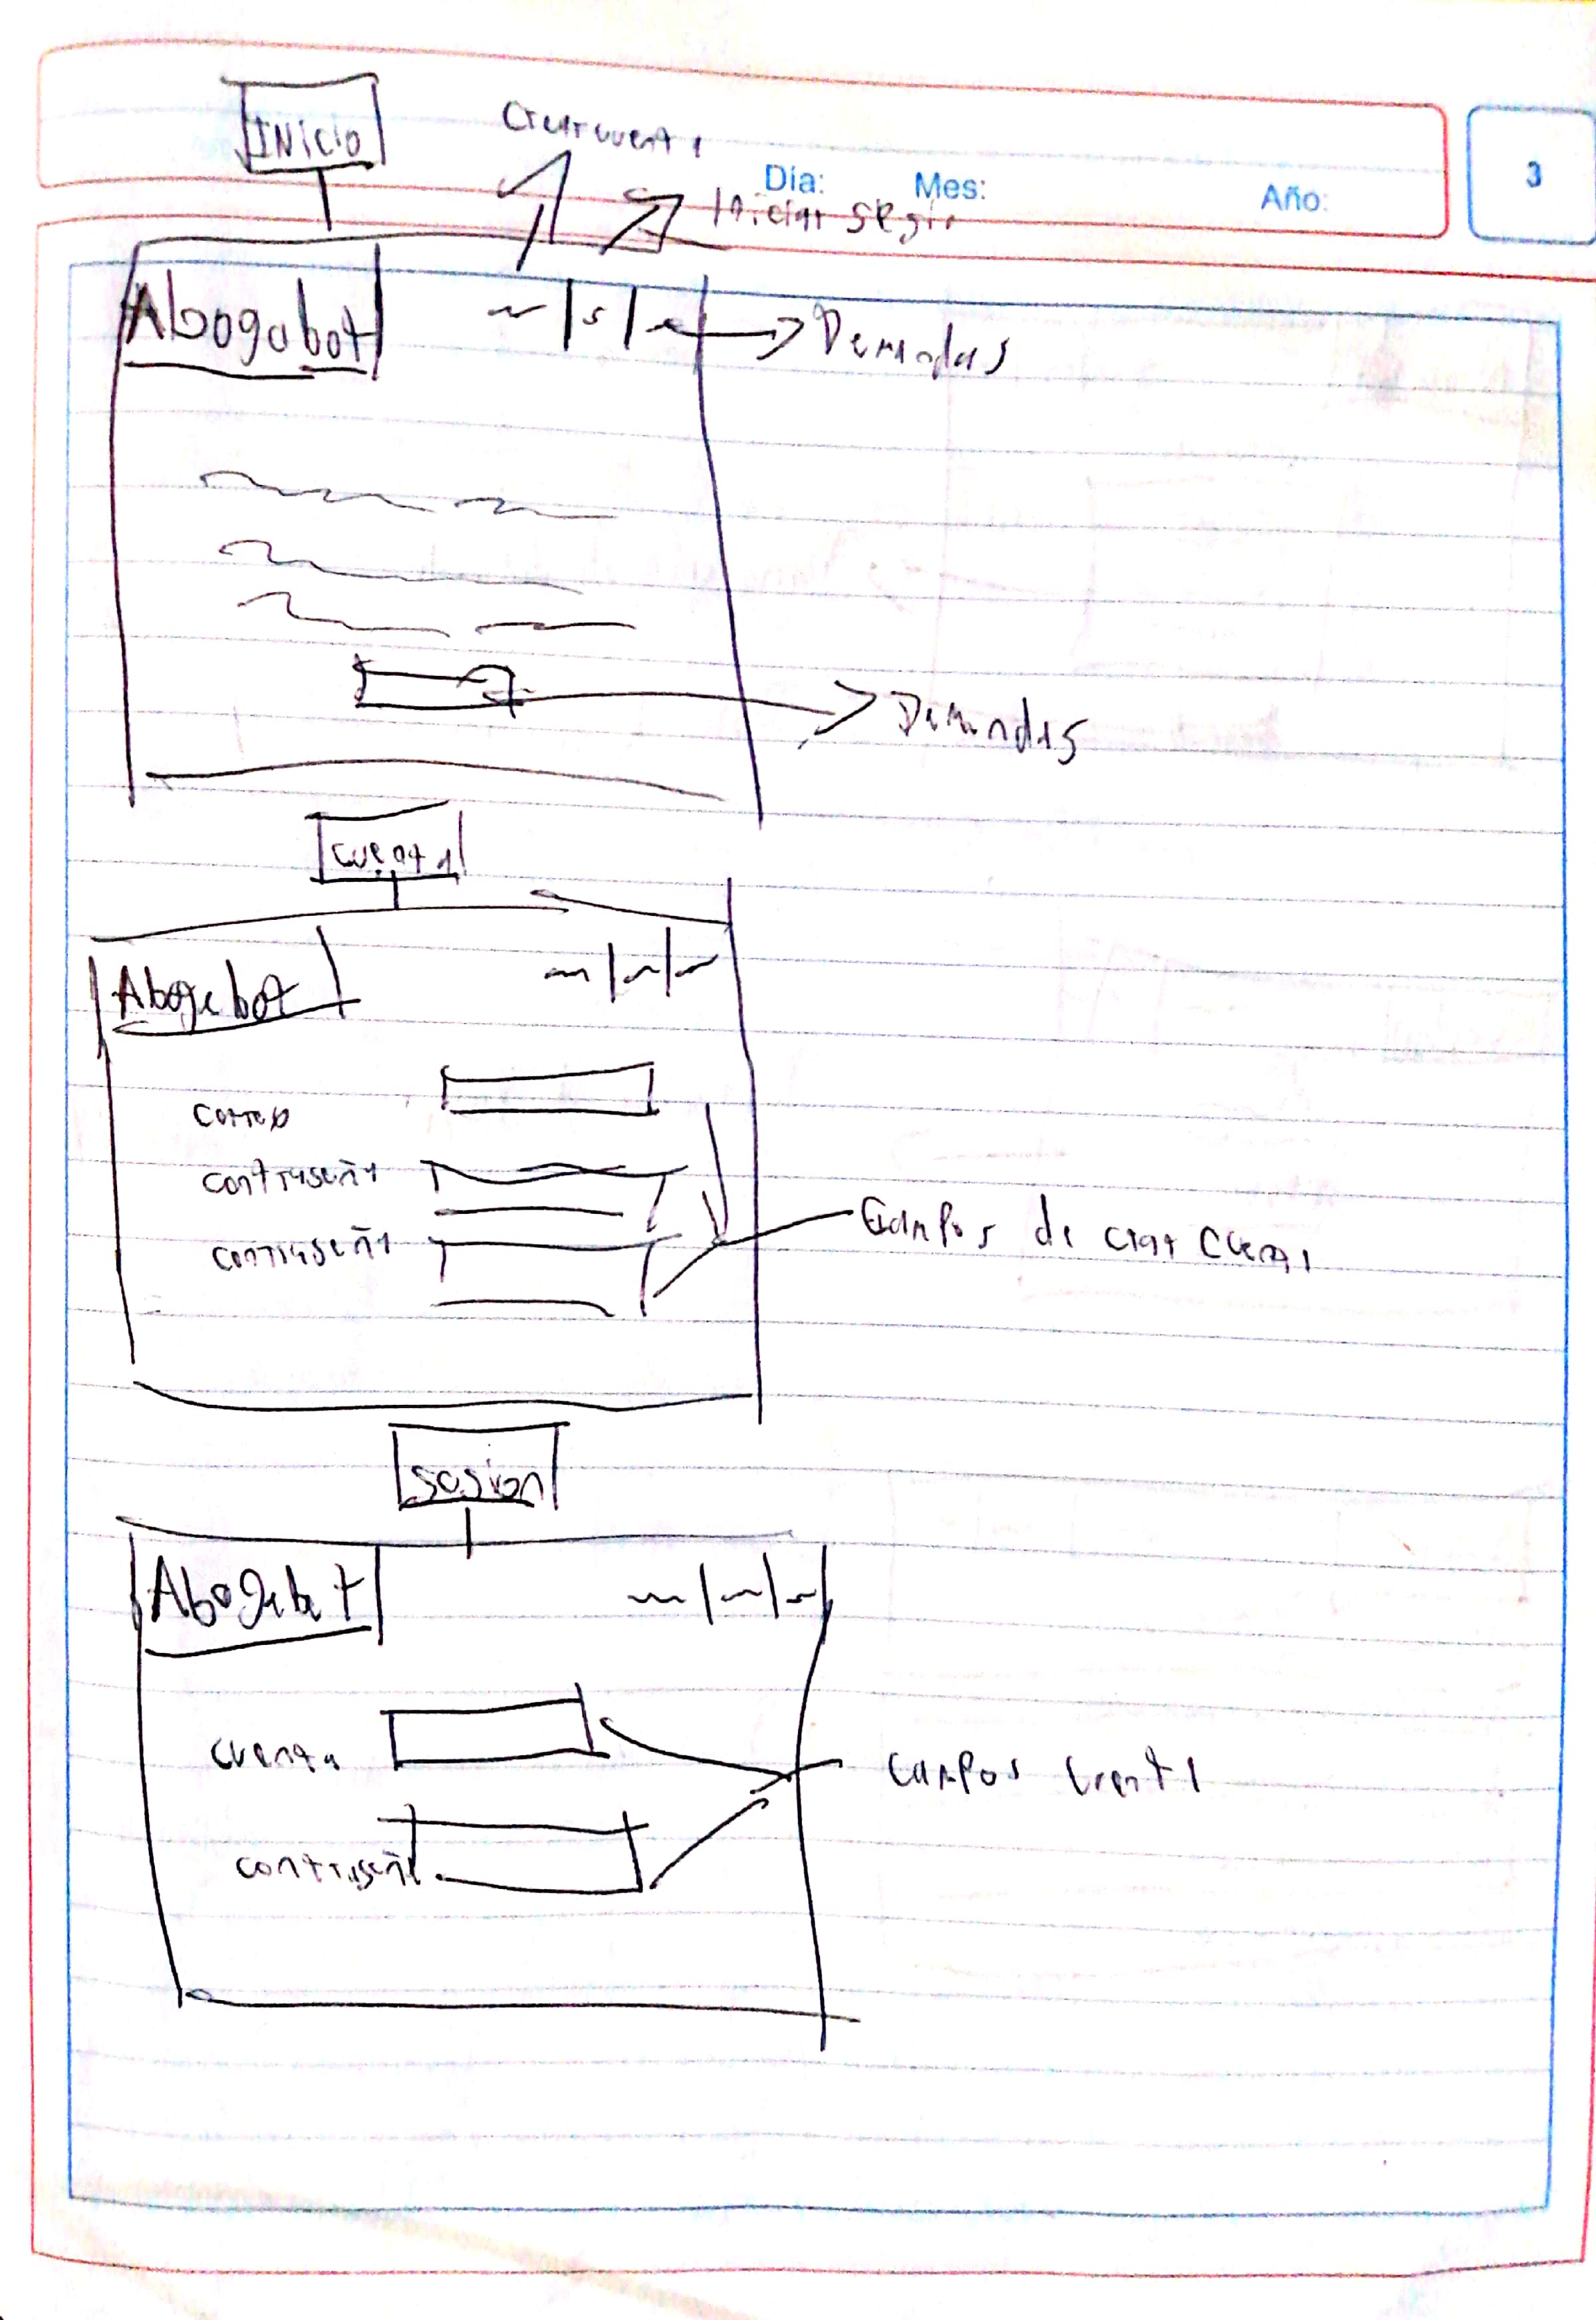 INICIO
Crear cuenta
Día: Mes: Año:
3
Iniciar
Abogabot
Demandas
Demandas
Cuenta
Abogabot
correo
contraseña
contraseña
Campos de crear cuenta
sesion
Abogabot
cuenta
campos cuenta
contraseña